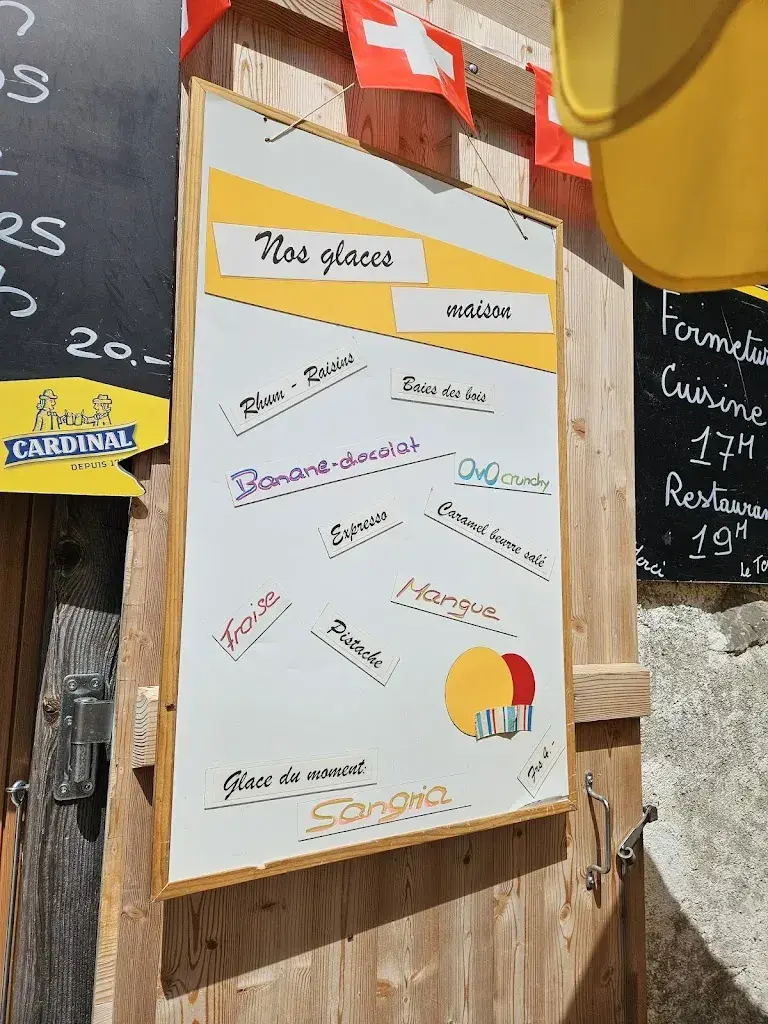 20.-
CARDINAL
DEPUIS
Nos glaces
maison
Rhum - Raisins
Baies des bois
Banane-chocolat
OVO crunchy
Expresso
Caramel beurre salé
Fraise
Mangue
Pistache
Frs 4.-
Glace du moment:
Sangria
Cuisine
17H
19H